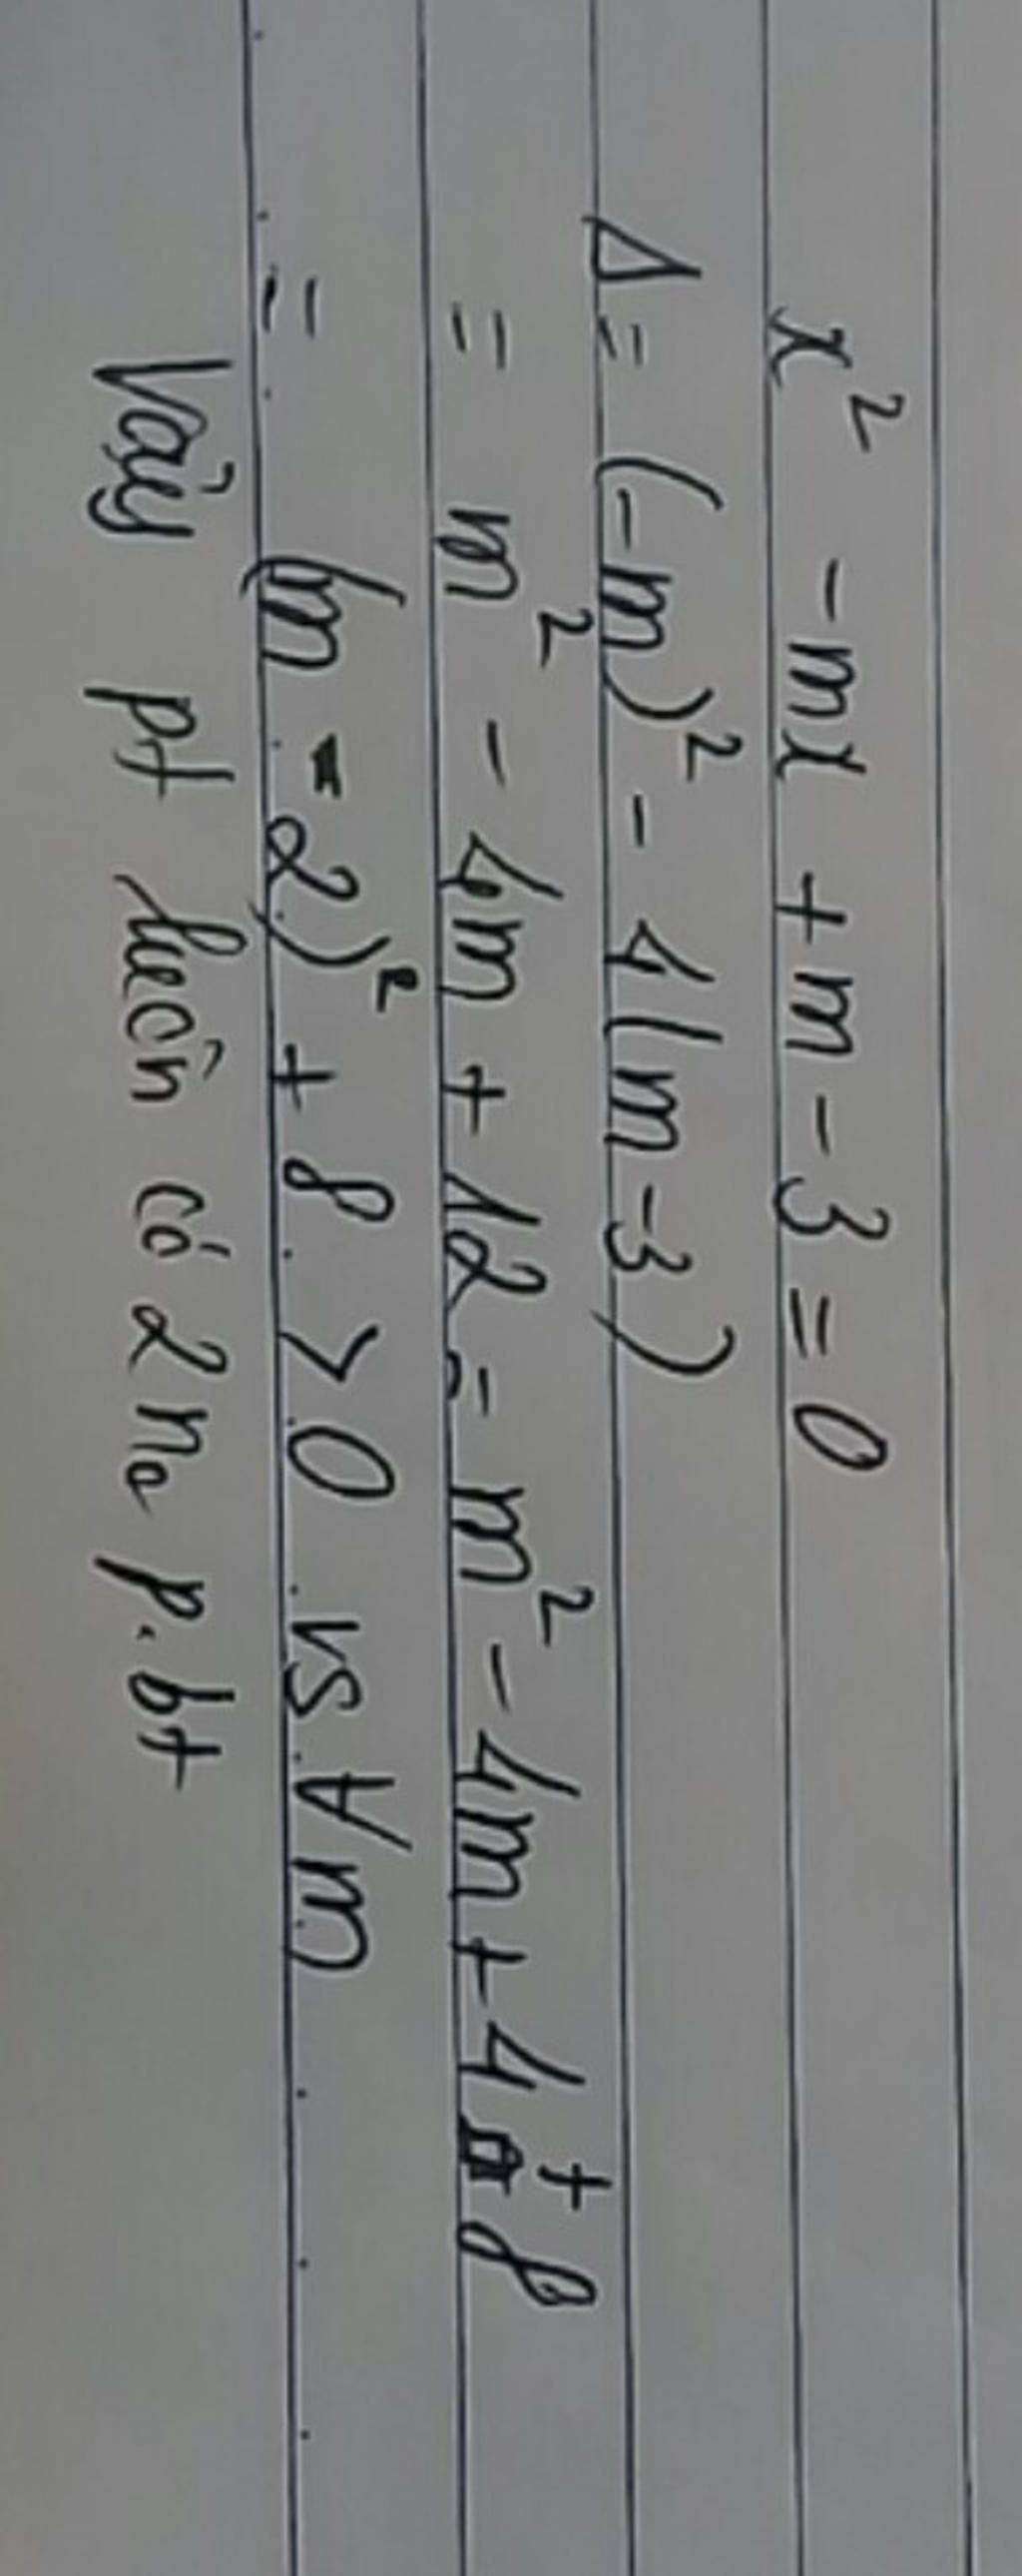 x² - mx + m - 3 = 0
Δ = (-m)² - 4(m - 3)
= m² - 4m + 12 = m² - 4m + 4 + 8
= (m - 2)² + 8 > 0 vs ∀m
Vậy pt luôn có 2 no p.bt